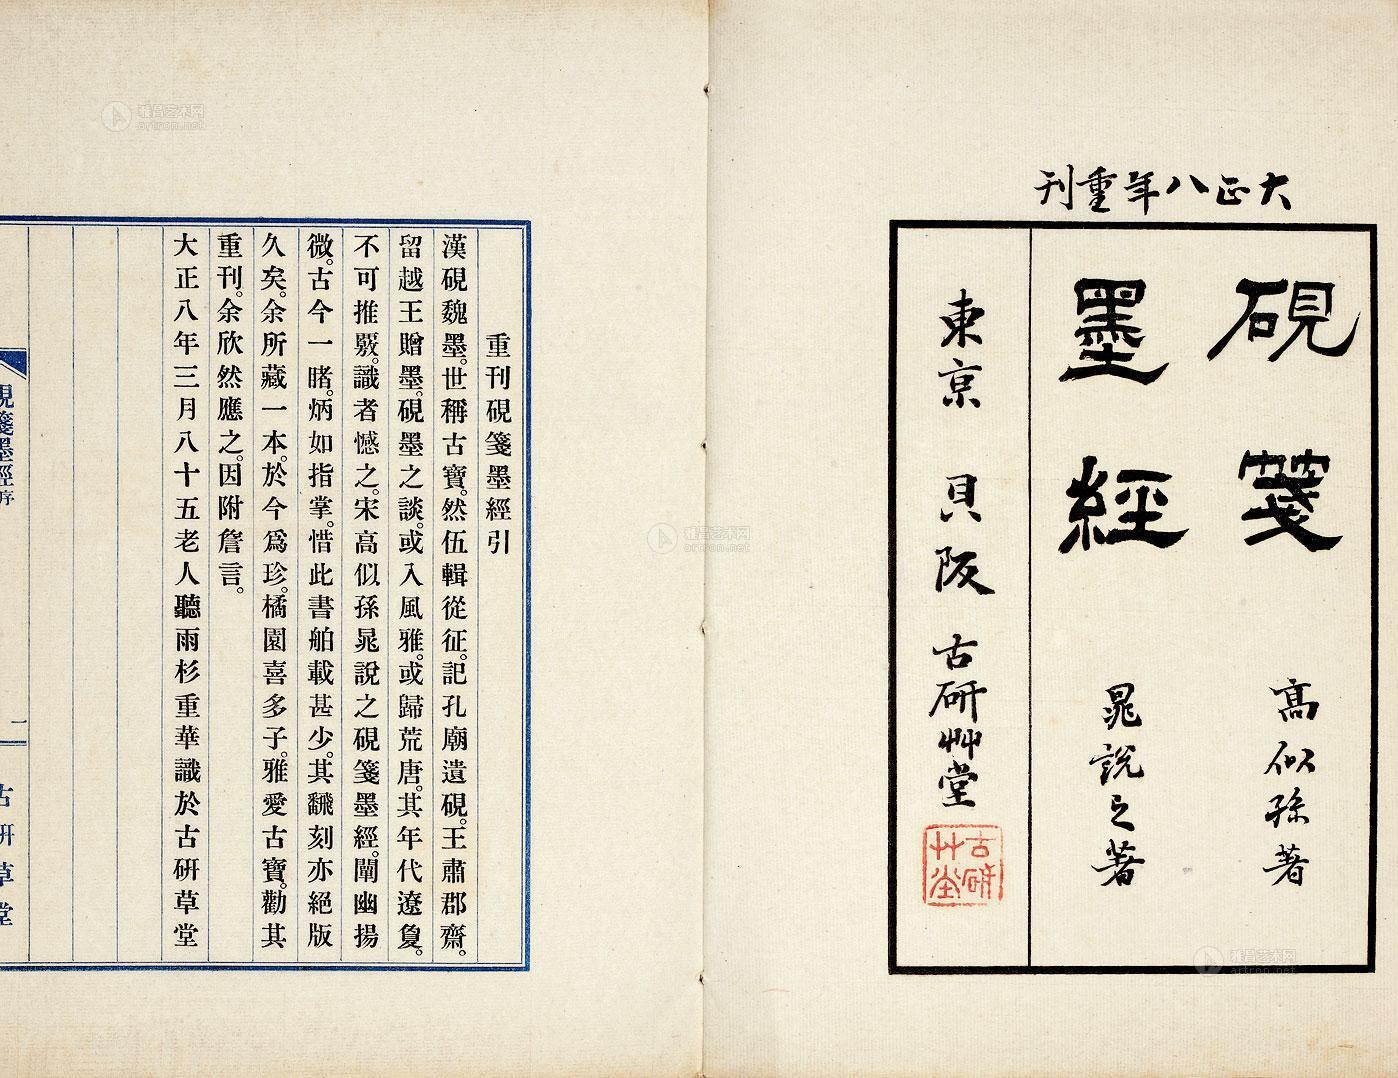 大正八年重刊
硯箋
高似孫著
墨經
晁說之著
東京 貝阪 古研艸堂
古研
艸堂
重刊硯箋墨經引
漢硯魏墨。世稱古寶。然伍輯從征。記孔廟遺硯。王肅郡齋。
留越王贈墨。硯墨之談。或入風雅。或歸荒唐。其年代遼敻。
不可推覈。識者憾之。宋高似孫晁說之硯箋墨經。闡幽揚
微。古今一睹。炳如指掌。惜此書舶載甚少。其飜刻亦絕版
久矣。余所藏一本。於今爲珍。橘園喜多子。雅愛古寶。勸其
重刊。余欣然應之。因附詹言。
大正八年三月八十五老人聽雨杉重華識於古硏草堂
硯箋墨經序
一
古硏草堂
雅昌艺术网
artron.net
雅昌艺术网
artron.net
雅昌艺术网
artron.net